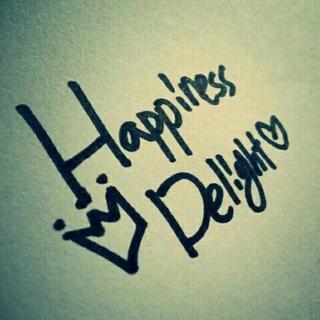 Happiness
Delight♡